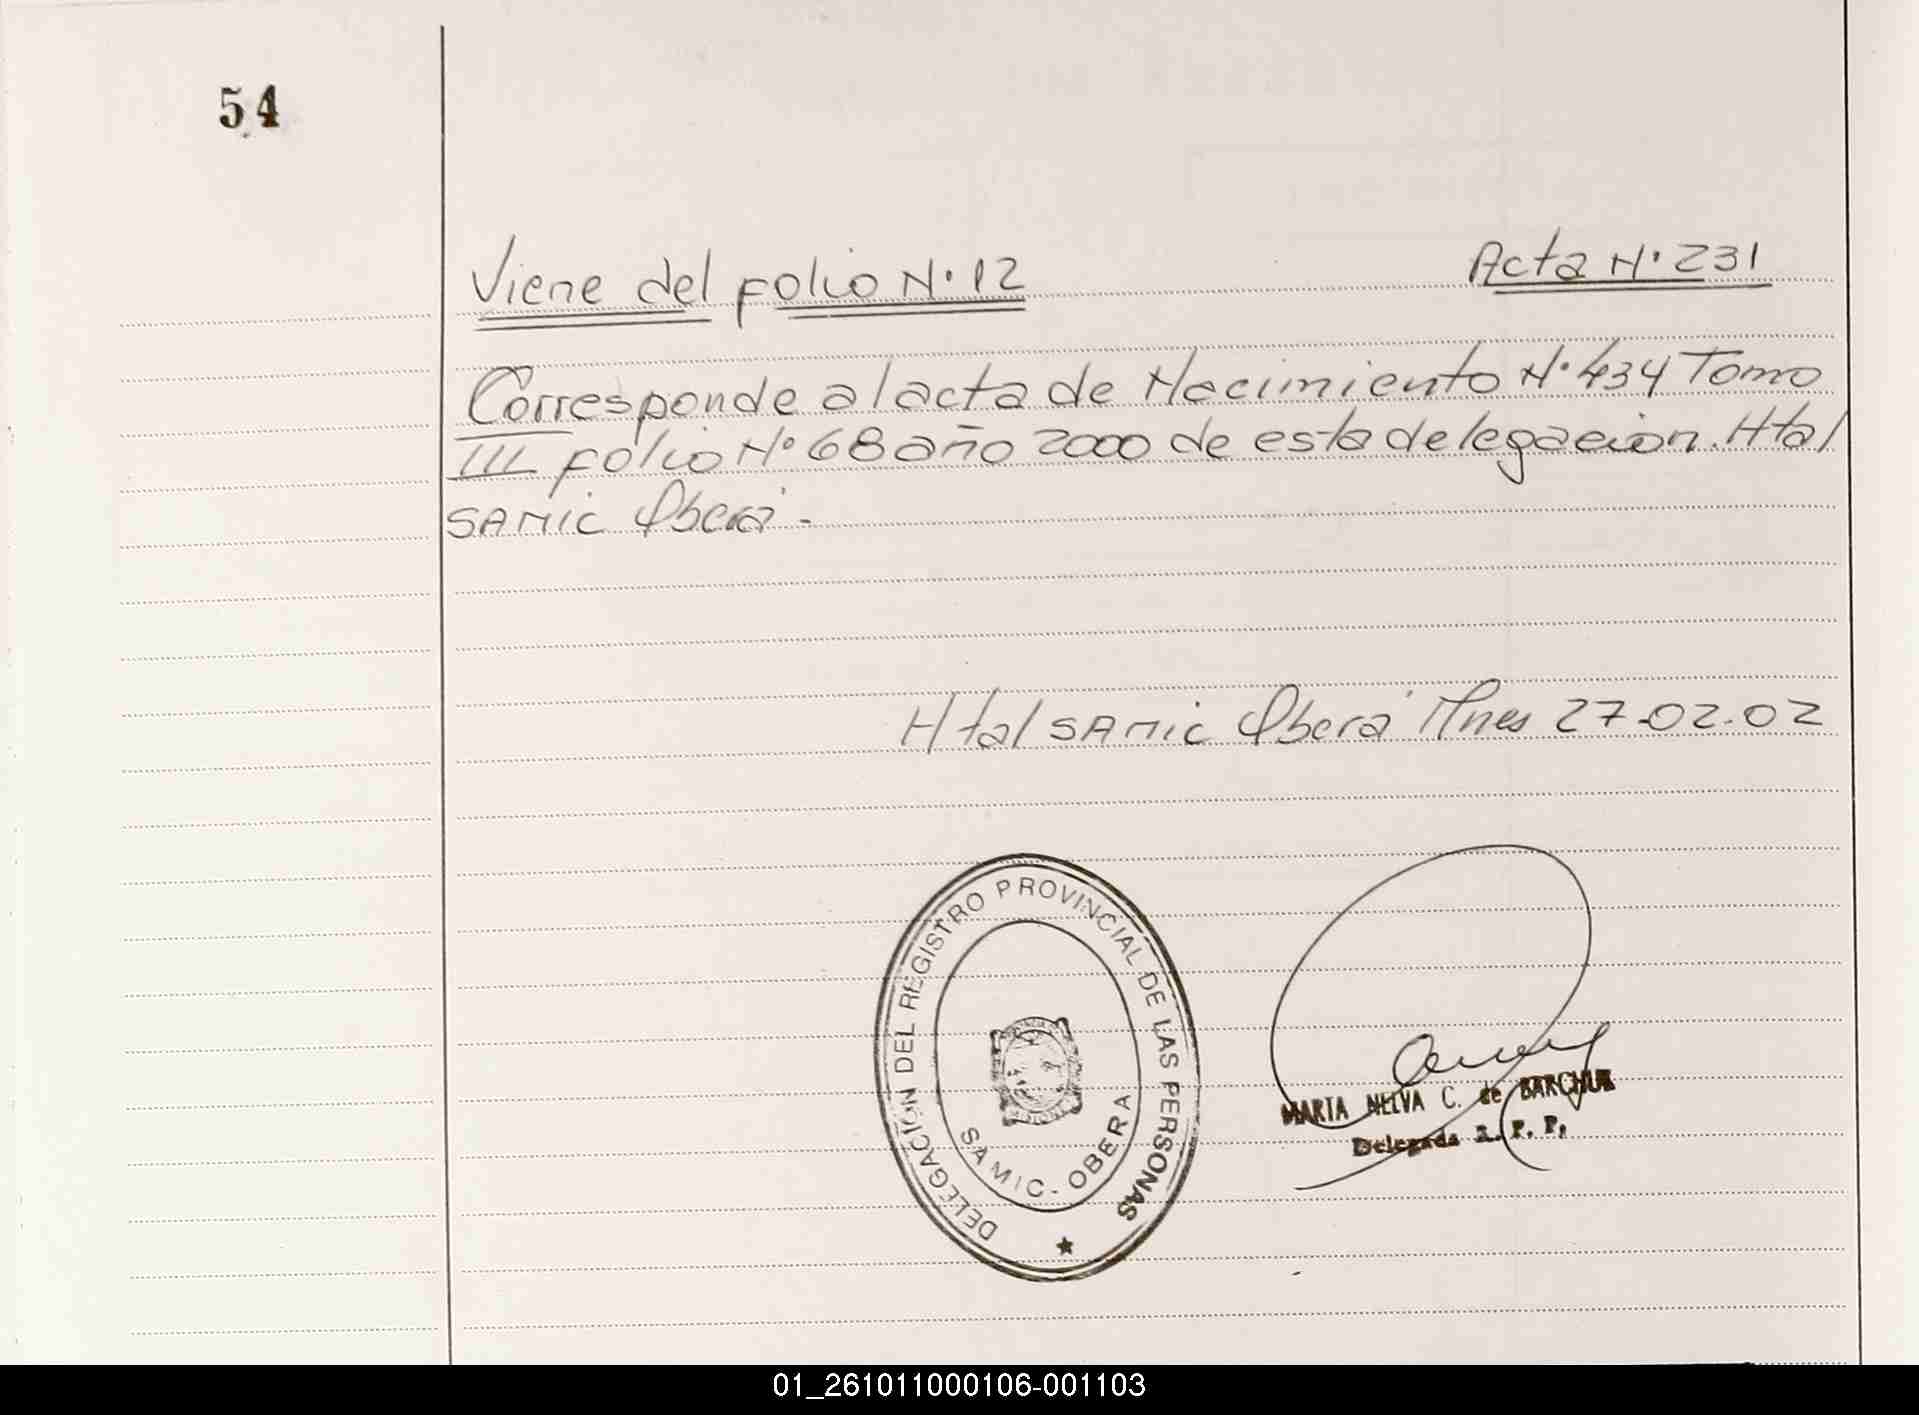 54
Viene del folio N·12
Acta N·231
Corresponde al acta de Nacimiento N·434 Tomo
III folio Nº68 año 2000 de esta delegacion. Htal
SAMIC Oberá.-
Htal SAMIC Oberá Mnes 27-02-02
DELEGACIÓN DEL REGISTRO PROVINCIAL DE LAS PERSONAS
SAMIC - OBERA
MARTA NELVA C. de BARCHUK
Delegada R. P. P.
01_261011000106-001103